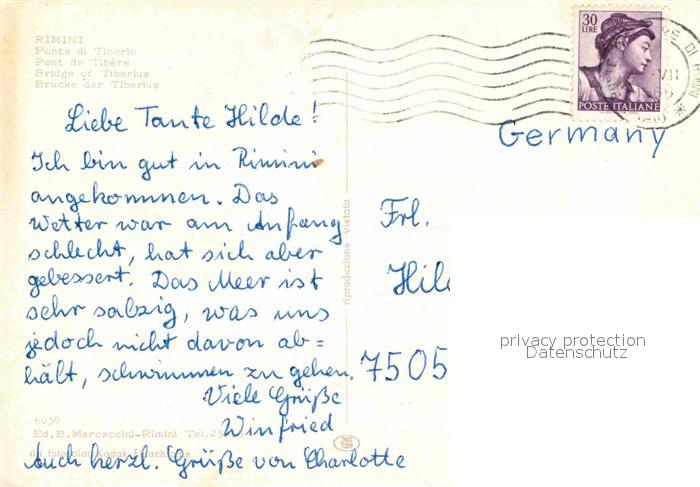 RIMINI
Ponte di Tiberio
Pont de Tibère
Bridge of Tiberius
Brücke der Tiberius
30
LIRE
POSTE ITALIANE
Germany
Liebe Tante Hilde!
Ich bin gut in Rimini
angekommen. Das
Wetter war am Anfang
schlecht, hat sich aber
gebessert. Das Meer ist
sehr salzig, was uns
jedoch nicht davon ab=
hält, schwimmen zu gehen.
Viele Grüße
Winfried
Auch herzl. Grüße von Charlotte
riproduzione vietata
Frl.
Hild
7505
privacy protection
Datenschutz
6058
Ed. B. Marcaccini-Rimini Tel.
Kodak